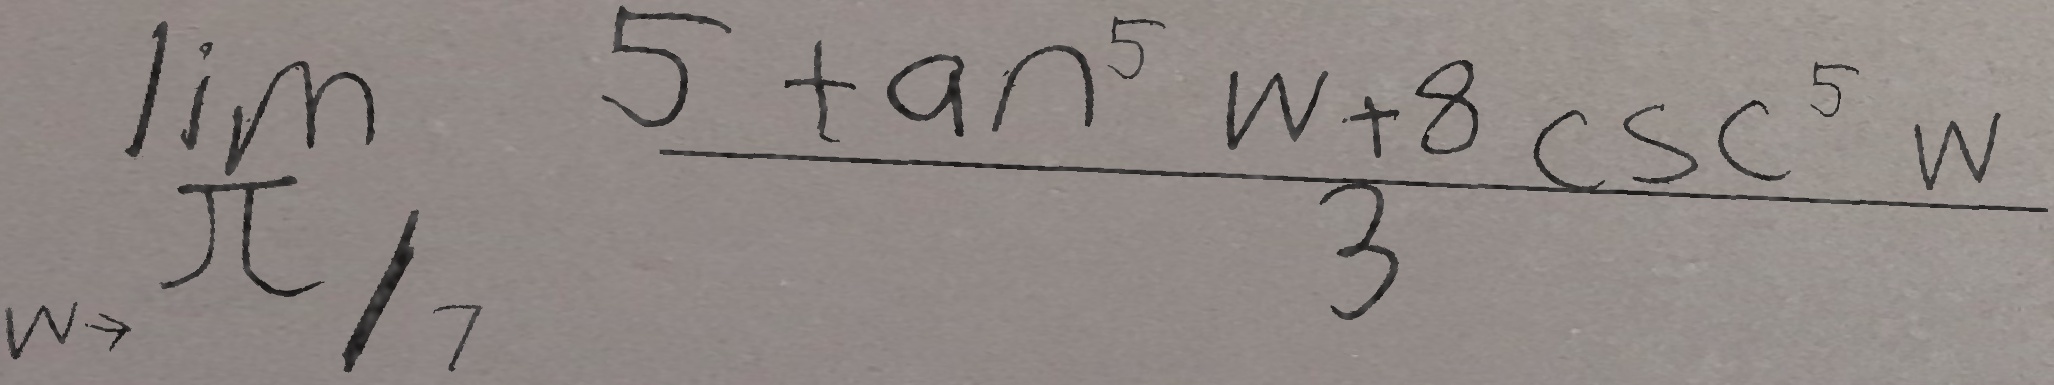 \lim_{w \to \pi/7} \frac{5 \tan^5 w + 8 \csc^5 w}{3}